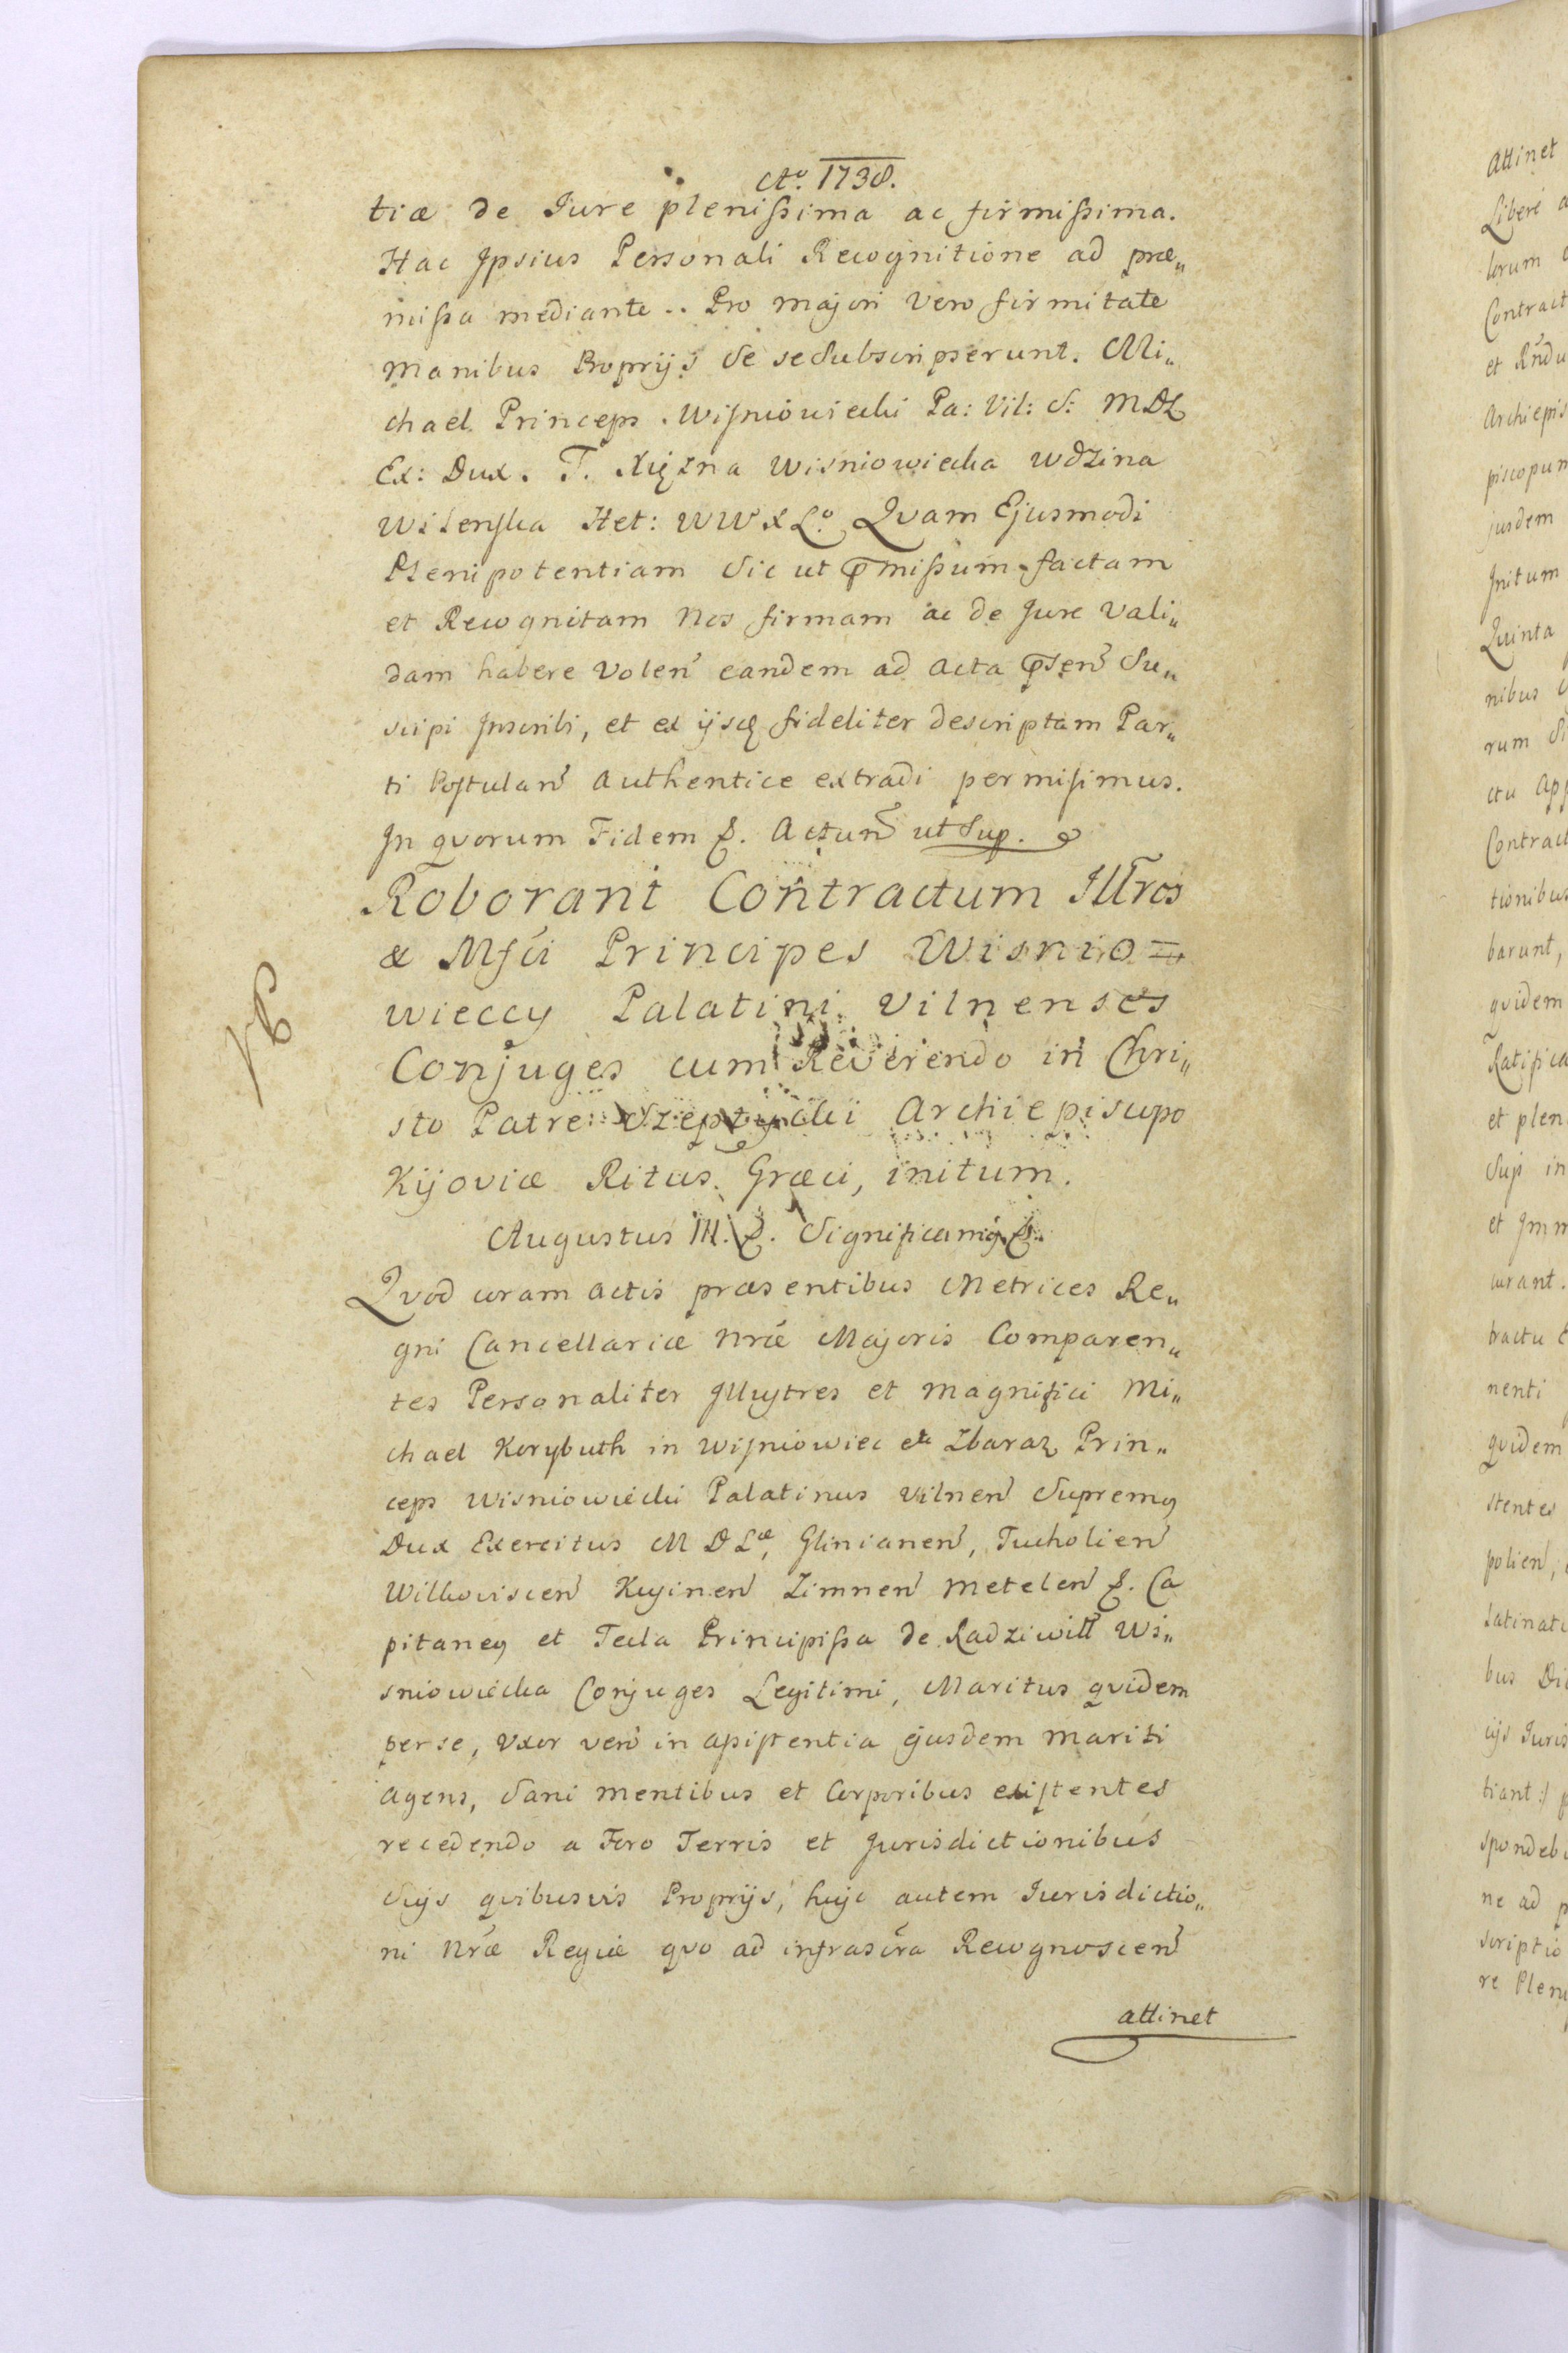 Ao. 1738.
tiæ de Jure plenissima ac firmissima.
Hac Ipsius Personali Recognitione ad præ„
missa mediante.. Pro majori vero firmitate
manibus Proprijs se se subscripserunt. Mi„
chael Princeps Wisniowiecki Pa: Vil: S: MDL
Ex: Dux. T. Xiężna Wisniowiecka Wdzina
Wilenska Het: WWXLo. Qvam Ejusmodi
Plenipotentiam sic ut pmissum factam
et Recognitam Nos firmam ac de Jure vali„
dam habere volen eandem ad acta psen Su„
scipi Inscribi, et ex ijsq fideliter descriptam Par„
ti Postulan authentice extradi permisimus.
In qvorum Fidem &. Actum ut Sup.
Roborant Contractum Illres
& Mfci Principes Wisnio=
wieccy Palatini Vilnenses
Conjuges cum Reverendo in Chri„
sto Patre Szeptycki Archiepiscupo
Kijoviæ Ritus Græci, initum.
NB
Augustus III. &. Significamq. &.
Qvod coram actis præsentibus Metrices Re„
gni Cancellariæ nræ Majoris Comparen„
tes Personaliter Illustres et magnifici Mi„
chael Korybuth in Wisniowiec et Zbaraz Prin„
ceps Wisniowiecki Palatinus Vilnen Supremq
Dux Exercitus M D Læ, Glinianen, Tucholien
Wilkoviscen Kuÿinen Zimnen Metelen &. Ca
pitaneq et Tecla Principissa de Radziwiłł Wi„
sniowiecka Conjuges Legitimi, Maritus qvidem
per se, Uxor vero in assistentia ejusdem mariti
agens, Sani mentibus et Corporibus existentes
recedendo a Foro Terris et Jurisdictionibus
Suijs qvibusvis Proprijs, huic autem Jurisdictio„
ni Nræ Regiæ qvo ad infrascra Recognoscen
attinet
attinet
Libere
lorum
Contract
et Rndu
Archiepis
piscopum
jusdem
Initum
Quinta
nibus
rum
ctu app
Contract
tionibus
barunt,
qvidem
Ratifica
et plen
Sup in
et Imm
curant.
tractu
nenti
qvidem
stentes
polien,
latinat
bus
ijs Juris
tiant:/
sponde
ne ad
scriptio
re Pleni